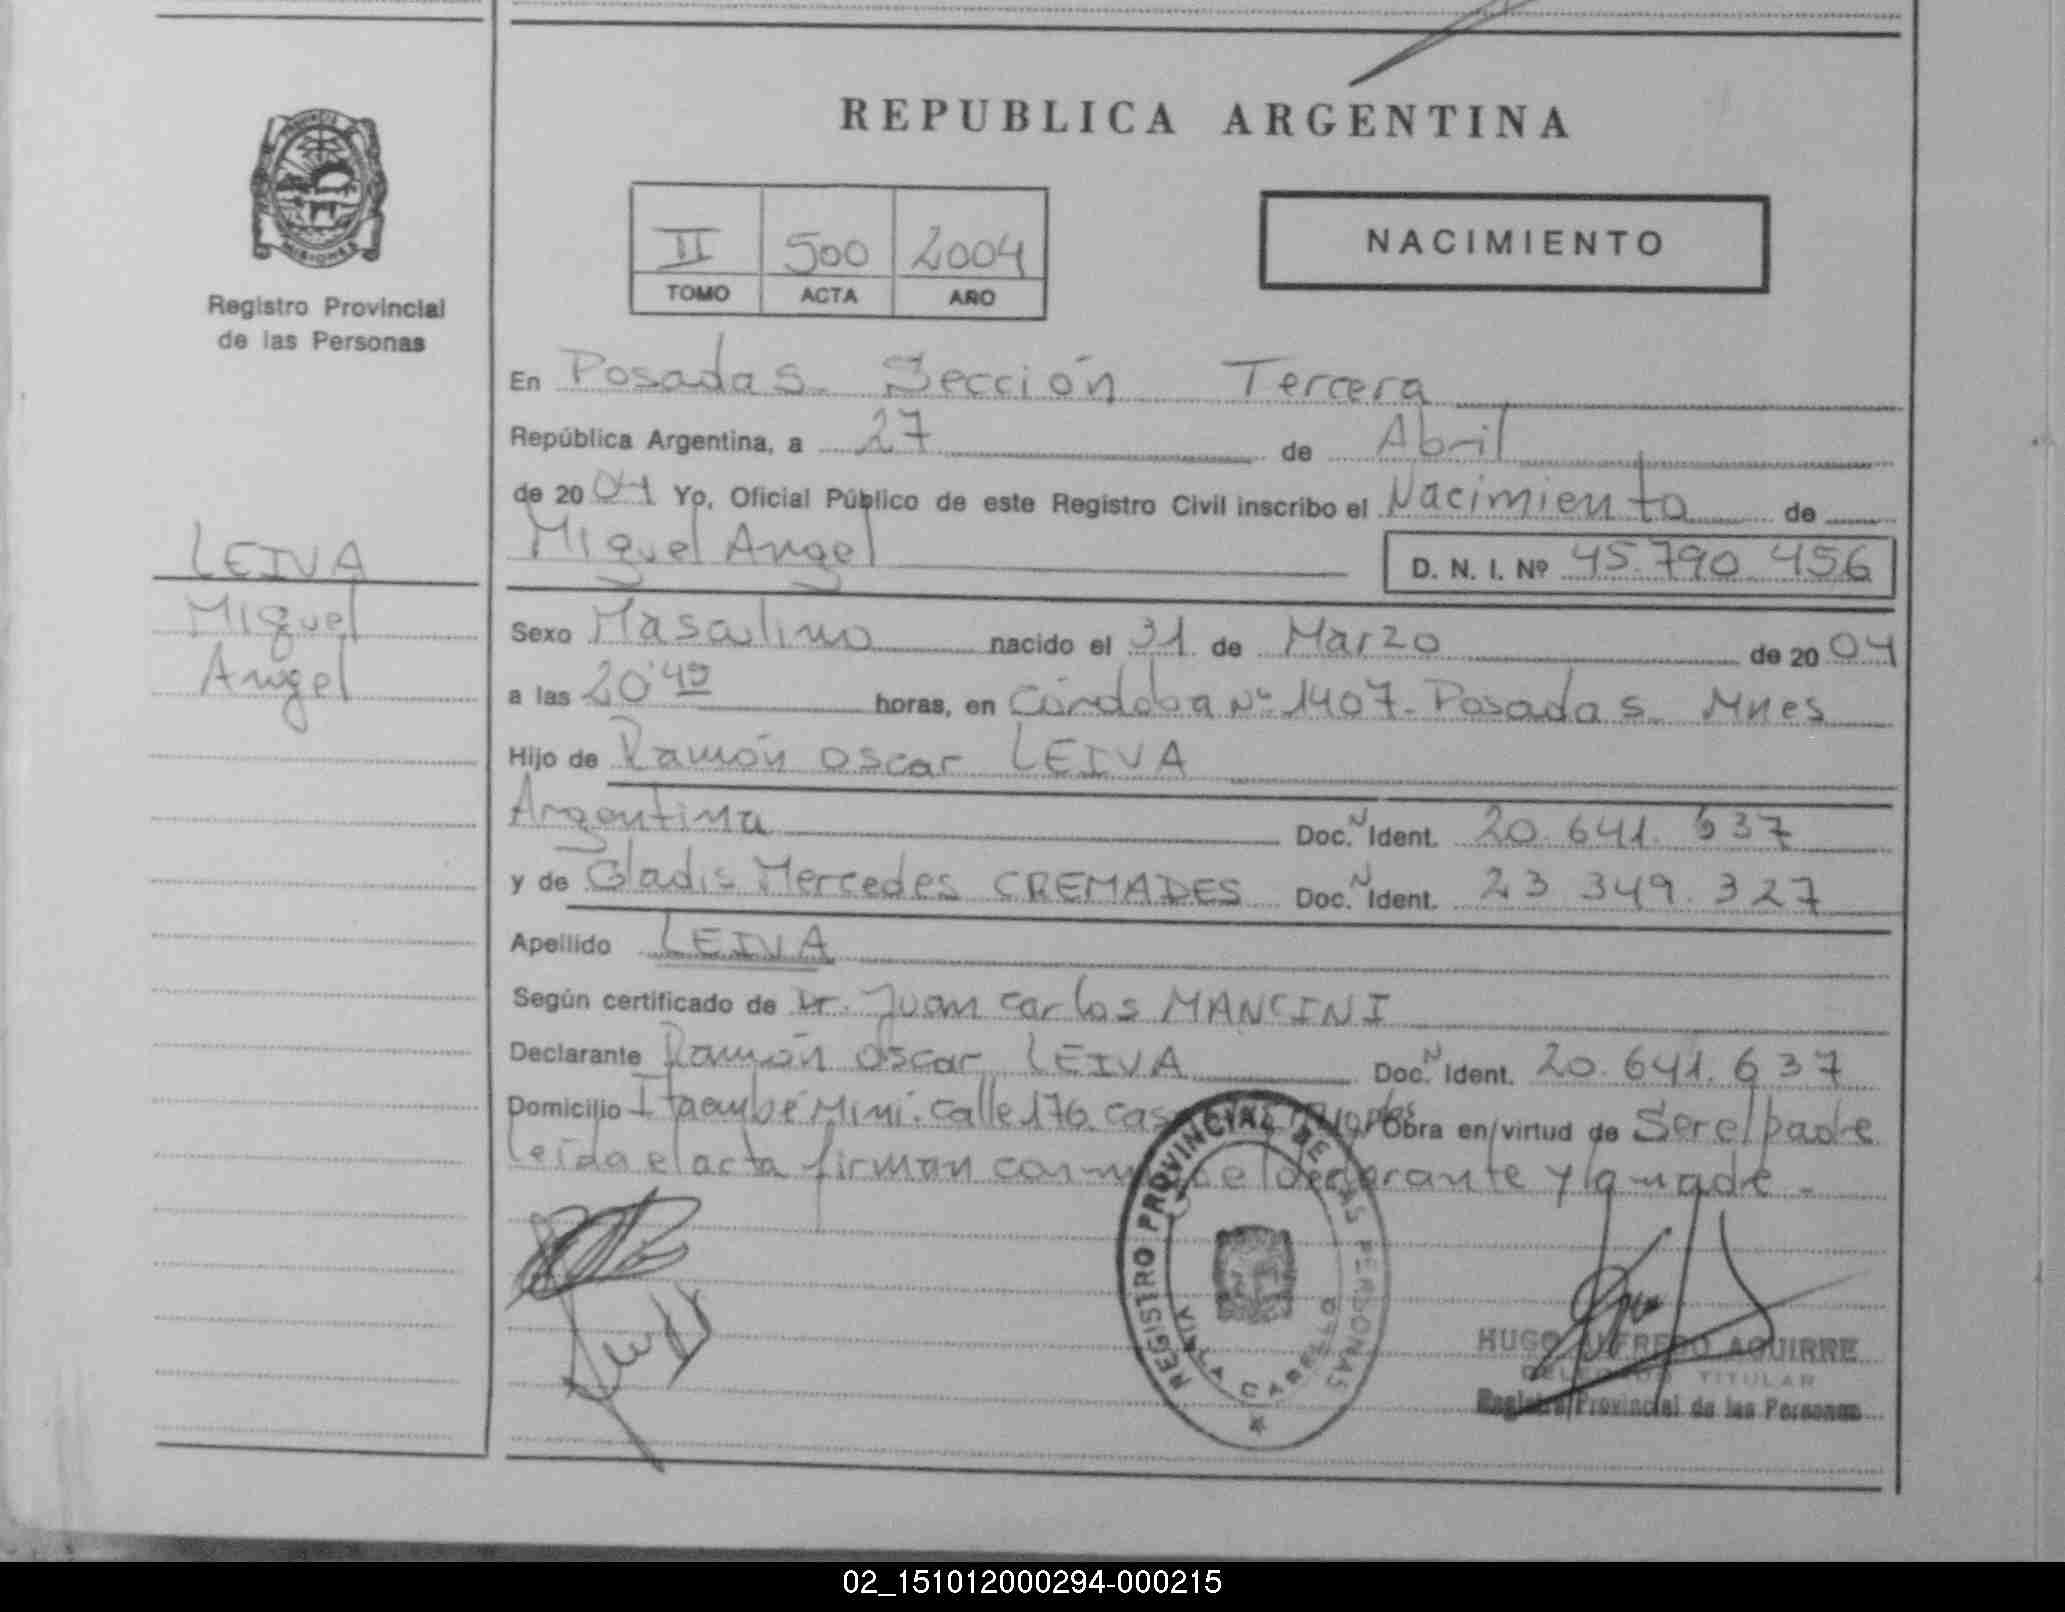 REPUBLICA ARGENTINA
PROVINCIA DE MISIONES
Registro Provincial
de las Personas
II 500 2004
TOMO ACTA AÑO
NACIMIENTO
En Posadas Sección Tercera
República Argentina, a 27 de Abril
de 2004 Yo, Oficial Público de este Registro Civil inscribo el Nacimiento de
Miguel Angel D. N. I. Nº 45.790.456
LEIVA
Miguel
Angel
Sexo Masculino nacido el 31 de Marzo de 2004
a las 20'45 horas, en Córdoba Nº 1407. Posadas Mnes
Hijo de Ramón Oscar LEIVA
Argentina Doc. N Ident. 20.641.637
y de Gladis Mercedes CREMADES Doc. N Ident. 23 349.327
Apellido LEIVA
Según certificado de Dr. Juan Carlos MANCINI
Declarante Ramón Oscar LEIVA Doc. N Ident. 20.641.637
Domicilio Itaembé Mini. Calle 176 Obra en virtud de Ser el padre
leída el acta firman el declarante y la madre.
REGISTRO PROVINCIAL DE LAS PERSONAS
VILLA CABELLO
HUGO ALFREDO AGUIRRE
DELEGADO TITULAR
Registro Provincial de las Personas
02_151012000294-000215